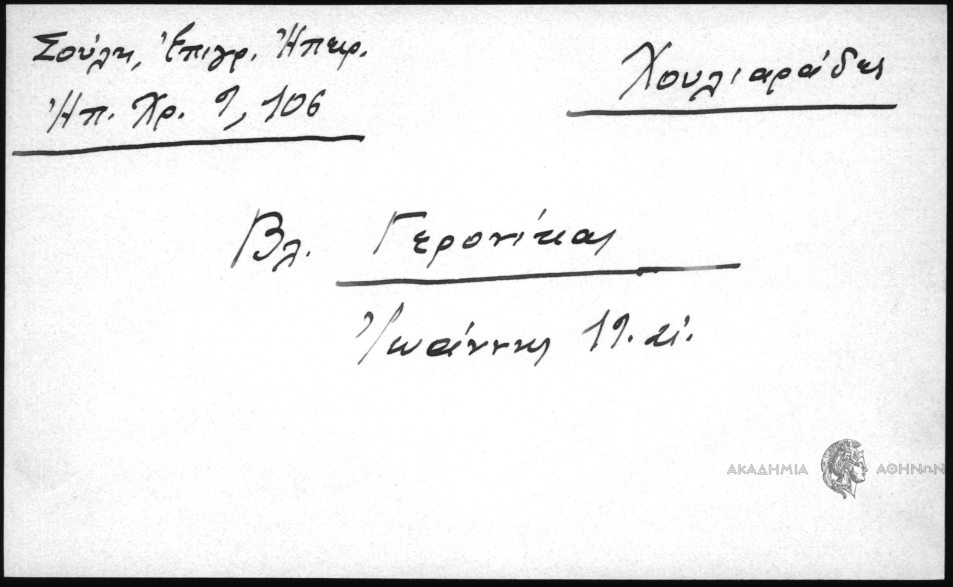 Σούλη, Ἐπιγρ. Ἠπειρ.
Ἠπ. Χρ. 9, 106
Χουλιαράδες
Βλ. Γερονίκας
Ἰωάννης 19. αἰ.
ΑΚΑΔΗΜΙΑ ΑΘΗΝΩΝ